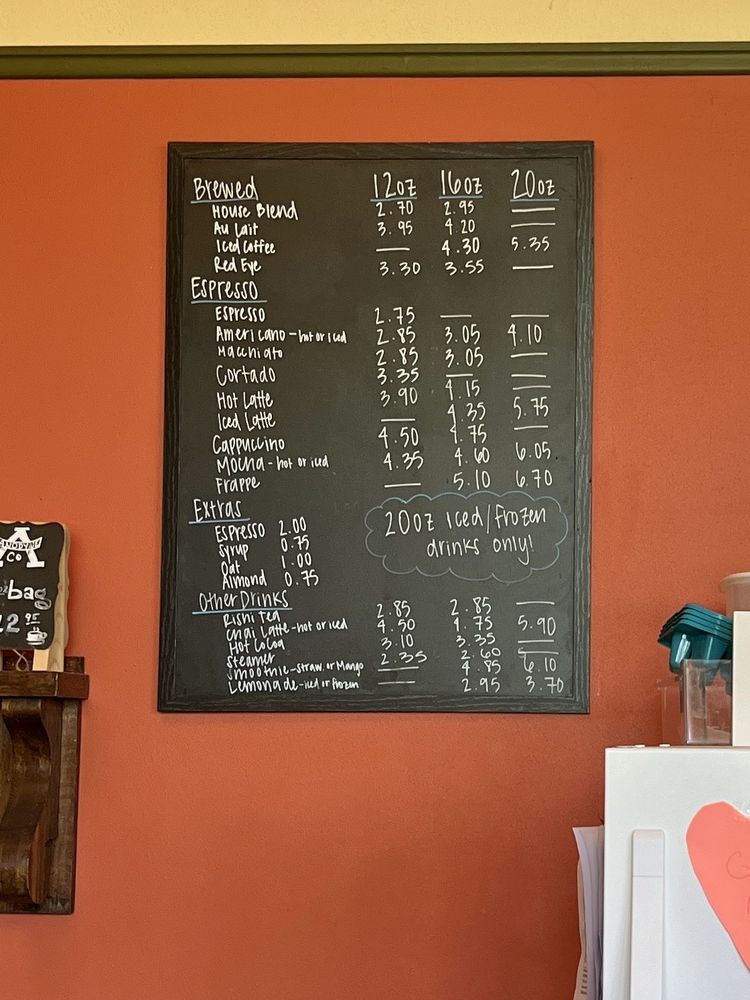 Brewed 12oz 16oz 20oz
House Blend 2.70 2.95 —
Au Lait 3.95 4.20 —
Iced Coffee — 4.30 5.35
Red Eye 3.30 3.55 —
Espresso
Espresso 2.75 — —
Americano - hot or iced 2.85 3.05 4.10
Macchiato 2.85 3.05 —
Cortado 3.35 — —
Hot Latte 3.90 4.15 —
Iced Latte — 4.35 5.75
Cappuccino 4.50 4.75 —
Mocha - hot or iced 4.35 4.60 6.05
Frappe — 5.10 6.70
Extras
Espresso 2.00
Syrup 0.75
Oat 1.00
Almond 0.75
20oz iced/frozen
drinks only!
Other Drinks
Rishi Tea 2.85 2.85 —
Chai Latte - hot or iced 4.50 4.75 5.90
Hot Cocoa 3.10 3.35 —
Steamer 2.35 2.60 —
Smoothie - straw. or Mango — 4.85 6.10
Lemonade - iced or frozen — 2.95 3.70
A
Co
bag